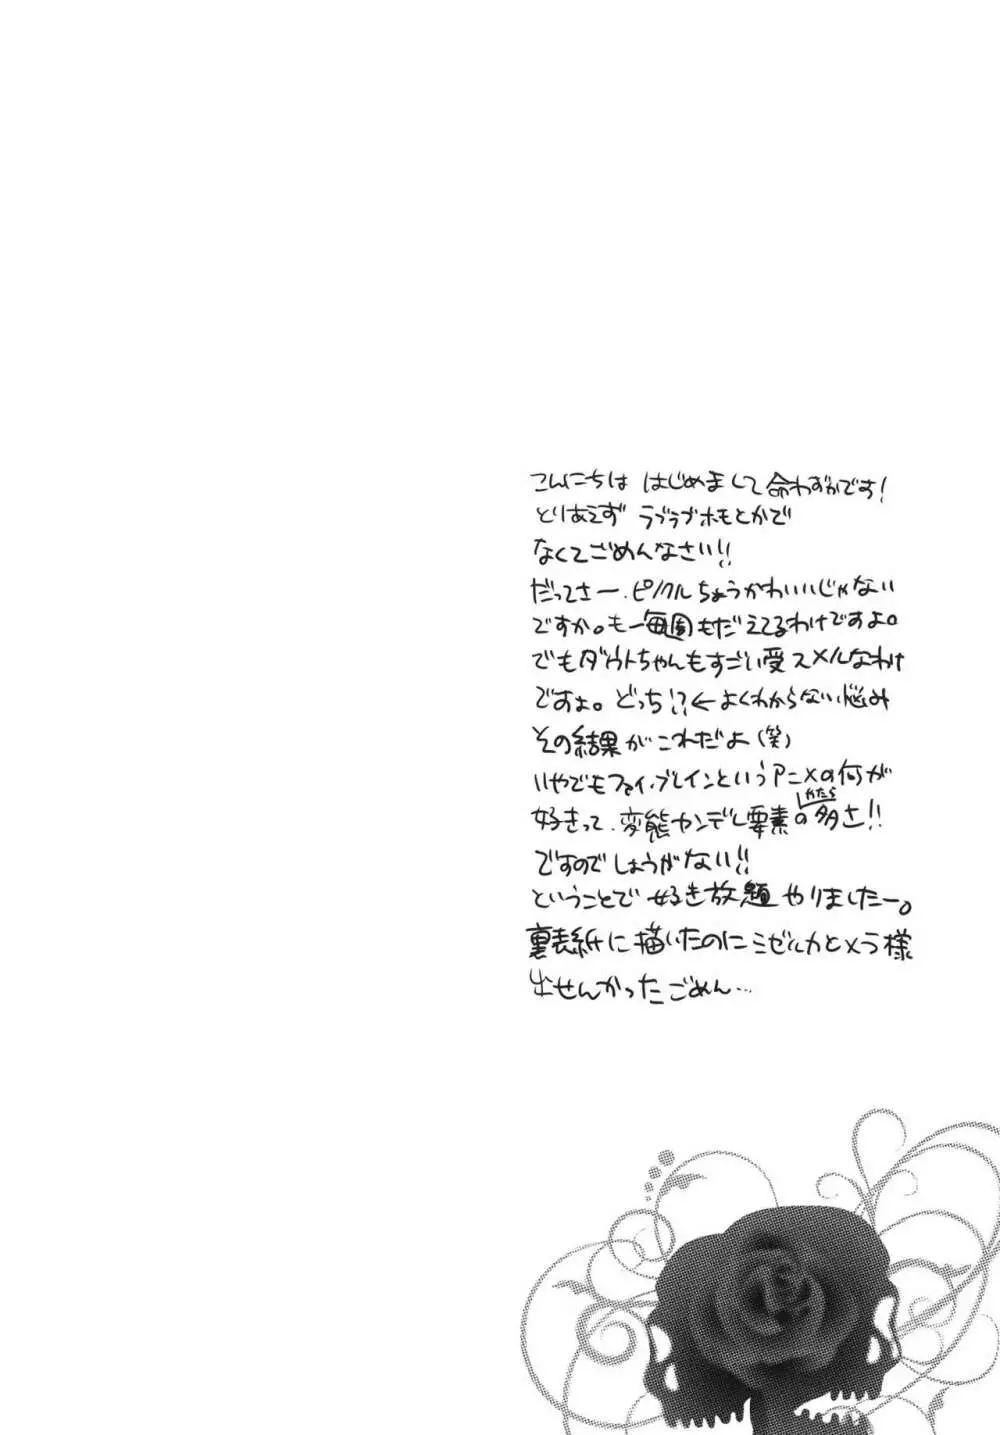 こんにちは はじめまして 命わずかです!
とりあえず ラブラブホモとかで
なくてごめんなさい!!
だってさー、ピノクルちょうかわいいじゃない
ですか。も一毎週もだえてるわけですよ。
でもダウトちゃんもすごい受スメルなわけ
ですよ。どっち!?←よくわからない悩み
その結果がこれだよ(笑)
いやでもファイ・ブレインというアニメの何が
好きって、変態ヤンデレ要素の多さ!!
かたら
ですのでしょうがない!!
ということで 好き放題 やりましたー。
裏表紙に描いたのにミゼルカとメラ様
出せんかったごめん…